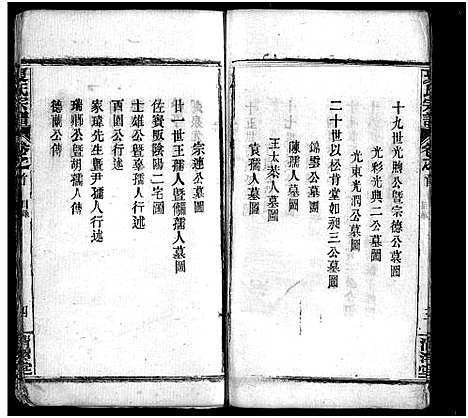 十九世光勝公暨宗德公墓圖
光彩光典二公墓圖
光東光潤公墓圖
二十世以松肯堂如昶三公墓圖
錦雲公墓圖
陳孺人墓圖
王太茶人墓圖
袁孺人墓圖
宗連公墓圖
廿一世王孺人暨儷孺人墓圖
佐賓殿陰陽二宅圖
士雄公暨辜孺人行述
西園公行述
家瑋先生暨尹孺人行述
瑞勳公暨胡孺人傳
德蘭公傳
氏宗譜
卷之首
目錄
四